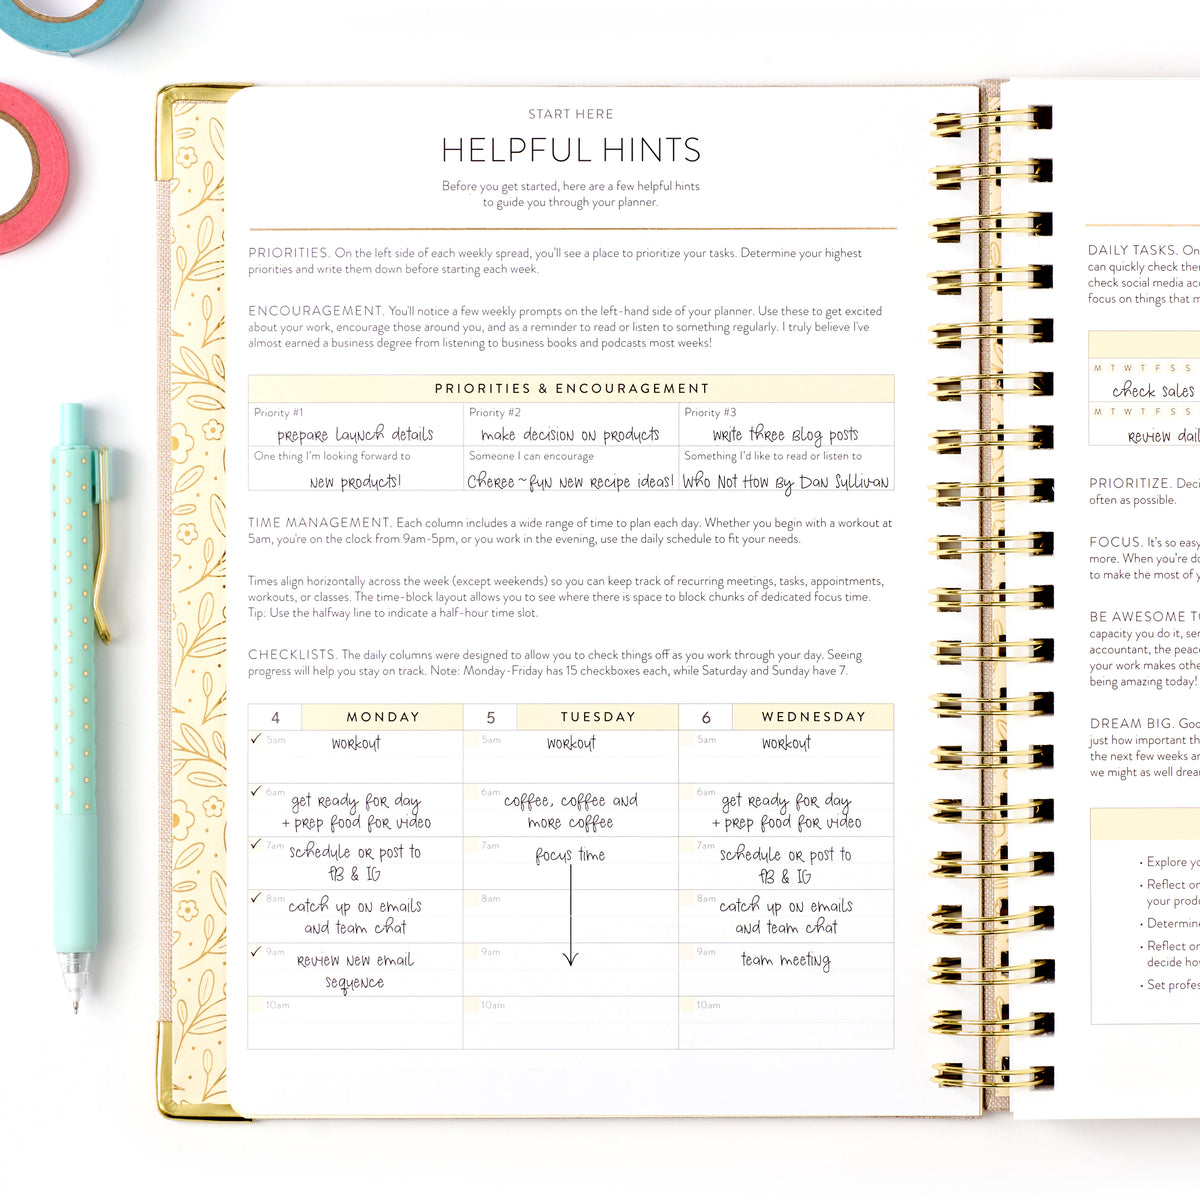 START HERE
HELPFUL HINTS
Before you get started, here are a few helpful hints
to guide you through your planner.
PRIORITIES. On the left side of each weekly spread, you'll see a place to prioritize your tasks. Determine your highest
priorities and write them down before starting each week.
ENCOURAGEMENT. You'll notice a few weekly prompts on the left-hand side of your planner. Use these to get excited
about your work, encourage those around you, and as a reminder to read or listen to something regularly. I truly believe I've
almost earned a business degree from listening to business books and podcasts most weeks!
PRIORITIES & ENCOURAGEMENT
Priority #1 Priority #2 Priority #3
prepare launch details make decision on products write three blog posts
One thing I'm looking forward to Someone I can encourage Something I'd like to read or listen to
new products! Cheree ~ fun new recipe ideas! Who Not How By Dan Sullivan
TIME MANAGEMENT. Each column includes a wide range of time to plan each day. Whether you begin with a workout at
5am, you're on the clock from 9am-5pm, or you work in the evening, use the daily schedule to fit your needs.
Times align horizontally across the week (except weekends) so you can keep track of recurring meetings, tasks, appointments,
workouts, or classes. The time-block layout allows you to see where there is space to block chunks of dedicated focus time.
Tip: Use the halfway line to indicate a half-hour time slot.
CHECKLISTS. The daily columns were designed to allow you to check things off as you work through your day. Seeing
progress will help you stay on track. Note: Monday-Friday has 15 checkboxes each, while Saturday and Sunday have 7.
4 MONDAY 5 TUESDAY 6 WEDNESDAY
✓ 5am workout 5am workout 5am workout
✓ 6am get ready for day 6am coffee, coffee and 6am get ready for day
+ prep food for video more coffee + prep food for video
✓ 7am schedule or post to 7am focus time 7am schedule or post to
FB & IG FB & IG
✓ 8am catch up on emails 8am 8am catch up on emails
and team chat and team chat
✓ 9am review new email 9am 9am team meeting
sequence
10am 10am 10am
DAILY TASKS. On
can quickly check the
check social media acc
focus on things that m
M T W T F S S
check sales
M T W T F S S
review dail
PRIORITIZE. Deci
often as possible.
FOCUS. It's so easy
more. When you're do
to make the most of y
BE AWESOME TO
capacity you do it, ser
accountant, the peace
your work makes othe
being amazing today!
DREAM BIG. Goo
just how important th
the next few weeks an
we might as well drea
• Explore yo
• Reflect on
your produ
• Determine
• Reflect on
decide how
• Set profes